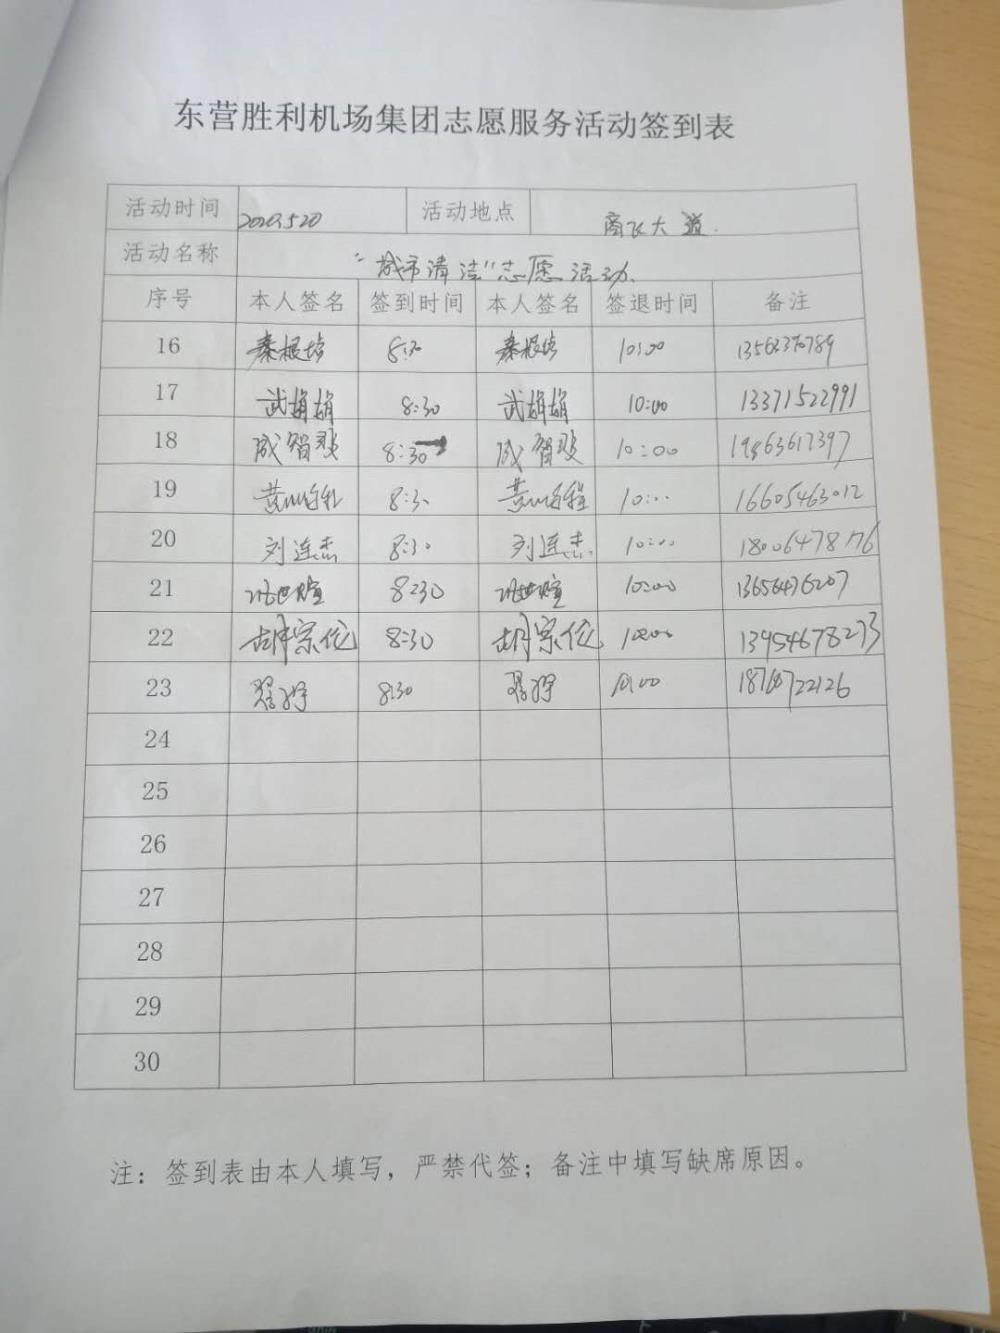 东营胜利机场集团志愿服务活动签到表
活动时间 2020.5.20 活动地点 商飞大道.
活动名称 "城市清洁"志愿活动.
序号 本人签名 签到时间 本人签名 签退时间 备注
16 秦根培 8:30 秦根培 10:00 13562370789
17 武娟娟 8:30 武娟娟 10:00 13371522991
18 8:30 10:00 19863617397
19 8:30 10:00 16605463012
20 刘连杰 8:30 刘连杰 10:00 18006478176
21 8:30 10:00 13656476207
22 胡宗伦 8:30 胡宗伦 10:00 13954678273
23 8:30 10:00 18760722126
24
25
26
27
28
29
30
注：签到表由本人填写，严禁代签；备注中填写缺席原因。